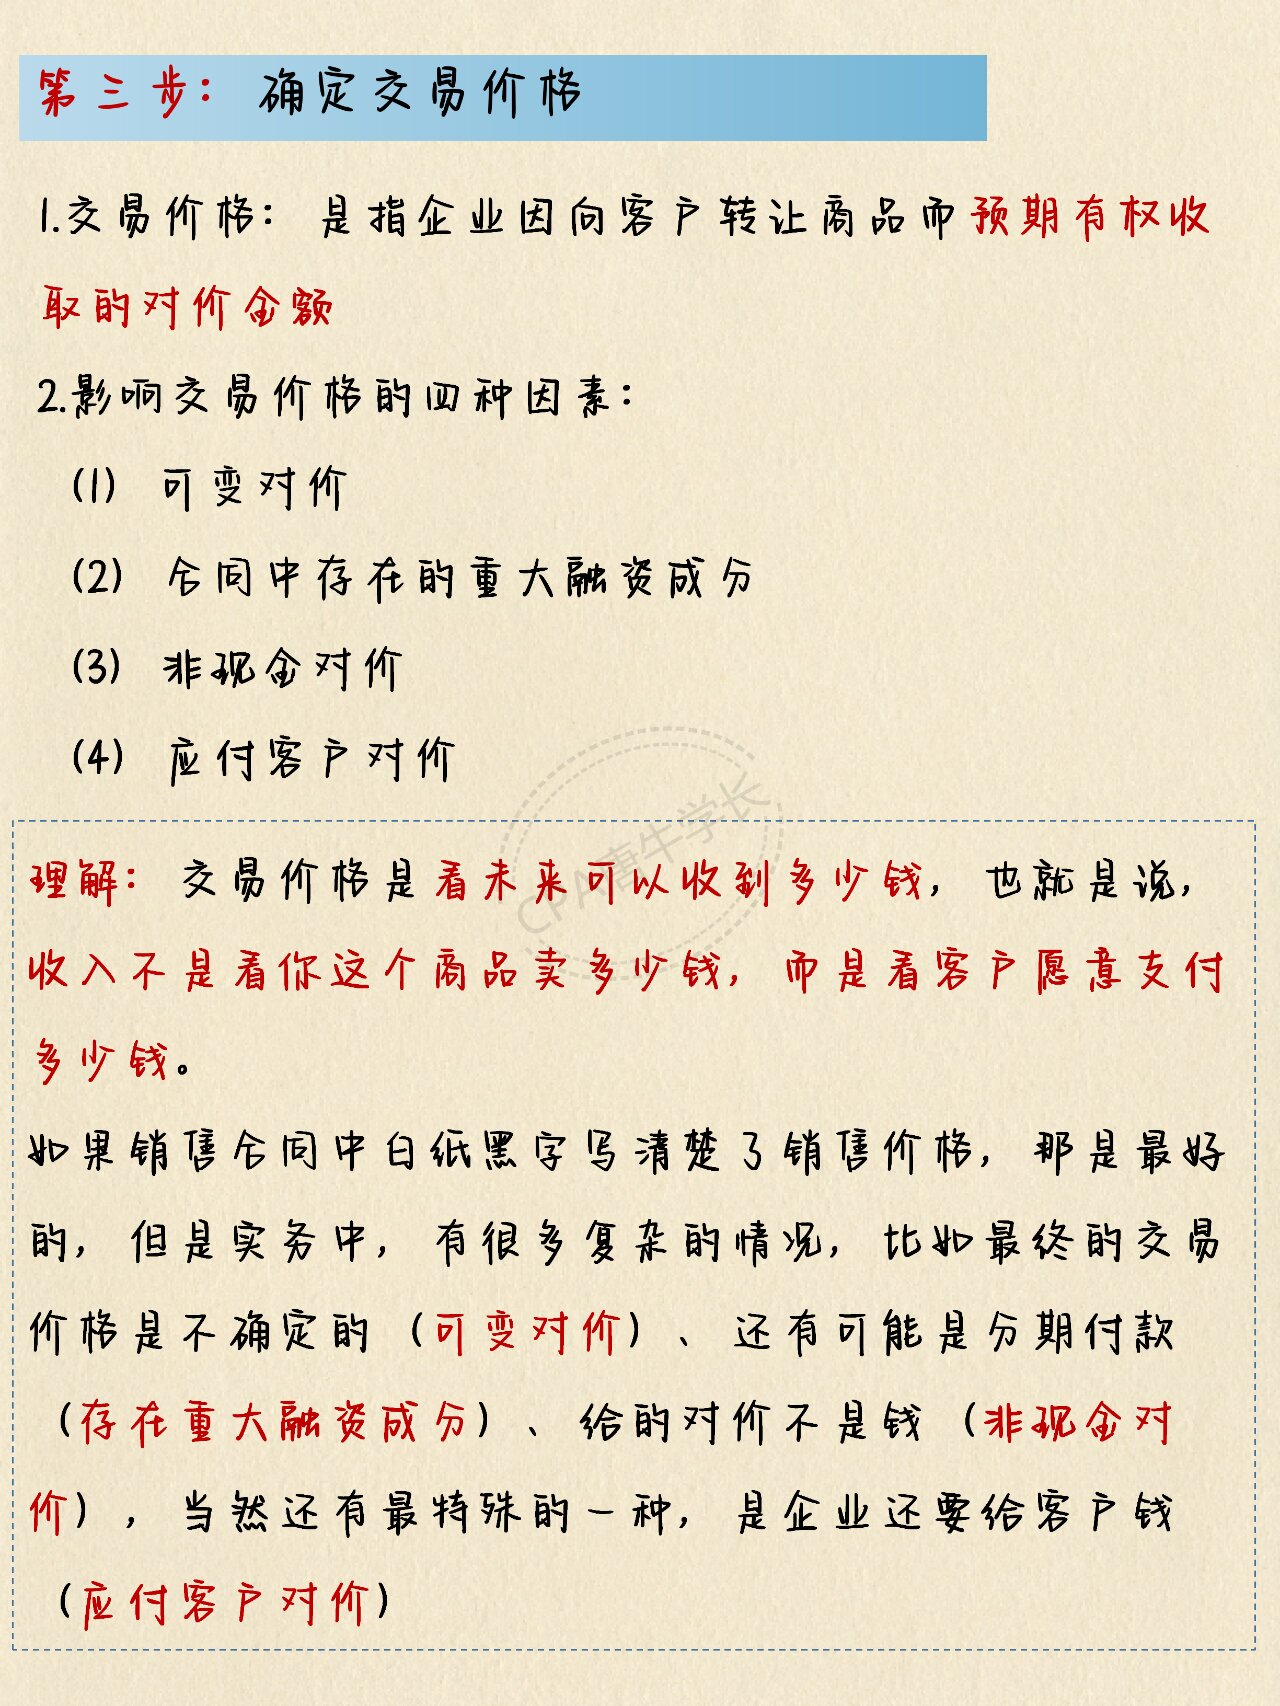 第三步：确定交易价格
1.交易价格：是指企业因向客户转让商品而预期有权收
取的对价金额
2.影响交易价格的四种因素：
(1) 可变对价
(2) 合同中存在的重大融资成分
(3) 非现金对价
(4) 应付客户对价
CPA唐牛学长
理解：交易价格是看未来可以收到多少钱，也就是说，
收入不是看你这个商品卖多少钱，而是看客户愿意支付
多少钱。
如果销售合同中白纸黑字写清楚了销售价格，那是最好
的，但是实务中，有很多复杂的情况，比如最终的交易
价格是不确定的（可变对价）、还有可能是分期付款
（存在重大融资成分）、给的对价不是钱（非现金对
价），当然还有最特殊的一种，是企业还要给客户钱
（应付客户对价）